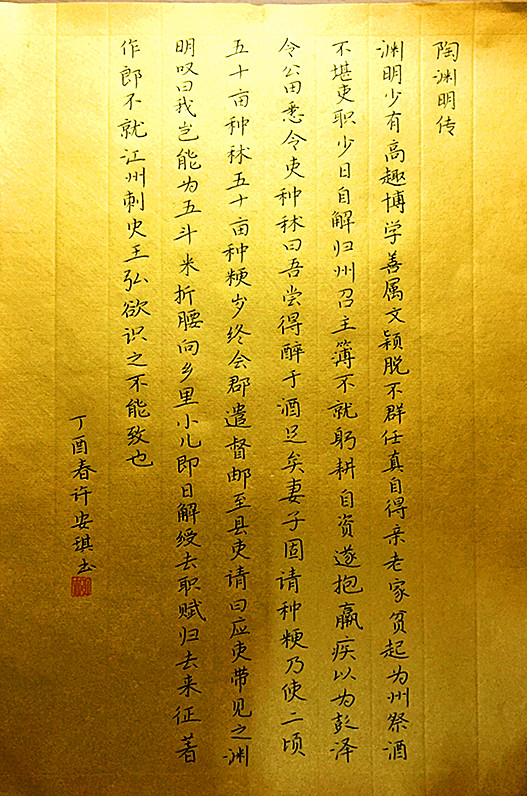 陶渊明传
渊明少有高趣博学善属文颖脱不群任真自得亲老家贫起为州祭酒
不堪吏职少日自解归州召主簿不就躬耕自资遂抱羸疾以为彭泽
令公田悉令吏种秫曰吾尝得醉于酒足矣妻子固请种粳乃使二顷
五十亩种秫五十亩种粳岁终会郡遣督邮至县吏请曰应吏带见之渊
明叹曰我岂能为五斗米折腰向乡里小儿即日解绶去职赋归去来征著
作郎不就江州刺史王弘欲识之不能致也
丁酉春许安琪书